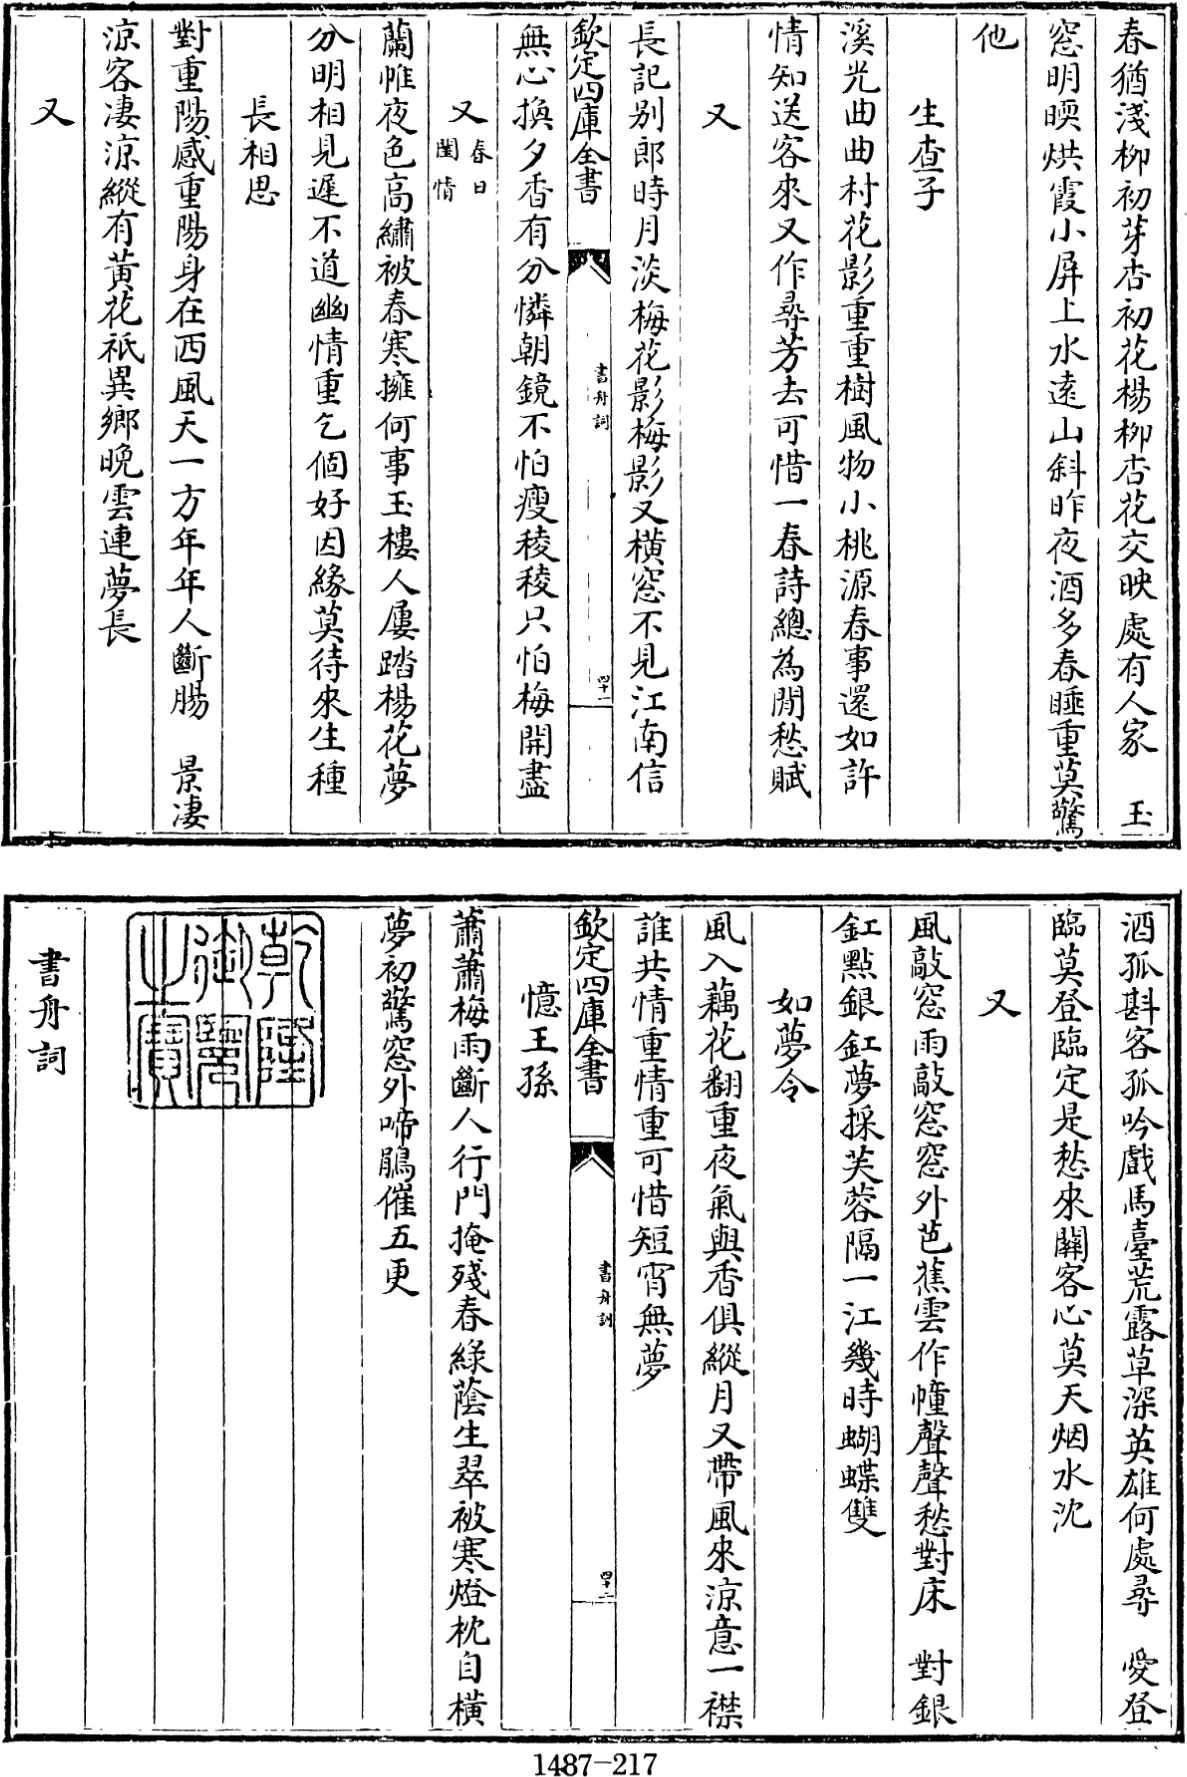 春猶淺柳初芽杏初花楊柳杏花交映處有人家　玉
窓明暎烘霞小屏上水遠山斜昨夜酒多春睡重莫驚
他
生查子
溪光曲曲村花影重重樹風物小桃源春事還如許
情知送客來又作尋芳去可惜一春詩總為閒愁賦
又
長記別郎時月淡梅花影梅影又橫窓不見江南信
欽定四庫全書
書舟詞
四十一
無心換夕香有分憐朝鏡不怕瘦稜稜只怕梅開盡
又春日閨情
蘭帷夜色高繡被春寒擁何事玉樓人屢踏楊花夢
分明相見遲不道幽情重乞個好因緣莫待來生種
長相思
對重陽感重陽身在西風天一方年年人斷腸　景凄
涼客凄涼縱有黃花祇異鄉晚雲連夢長
又
酒孤斟客孤吟戲馬臺荒露草深英雄何處尋　愛登
臨莫登臨定是愁來關客心莫天烟水沈
又
風敲窓雨敲窓窓外芭蕉雲作幢聲聲愁對床　對銀
釭點銀釭夢採芙蓉隔一江幾時蝴蝶雙
如夢令
風入藕花翻重夜氣與香俱縱月又帶風來涼意一襟
誰共情重情重可惜短宵無夢
欽定四庫全書
書舟詞
四十二
憶王孫
蕭蕭梅雨斷人行門掩殘春綠蔭生翠被寒燈枕自橫
夢初驚窓外啼鵑催五更
乾隆御覽之寶
書舟詞
1487-217